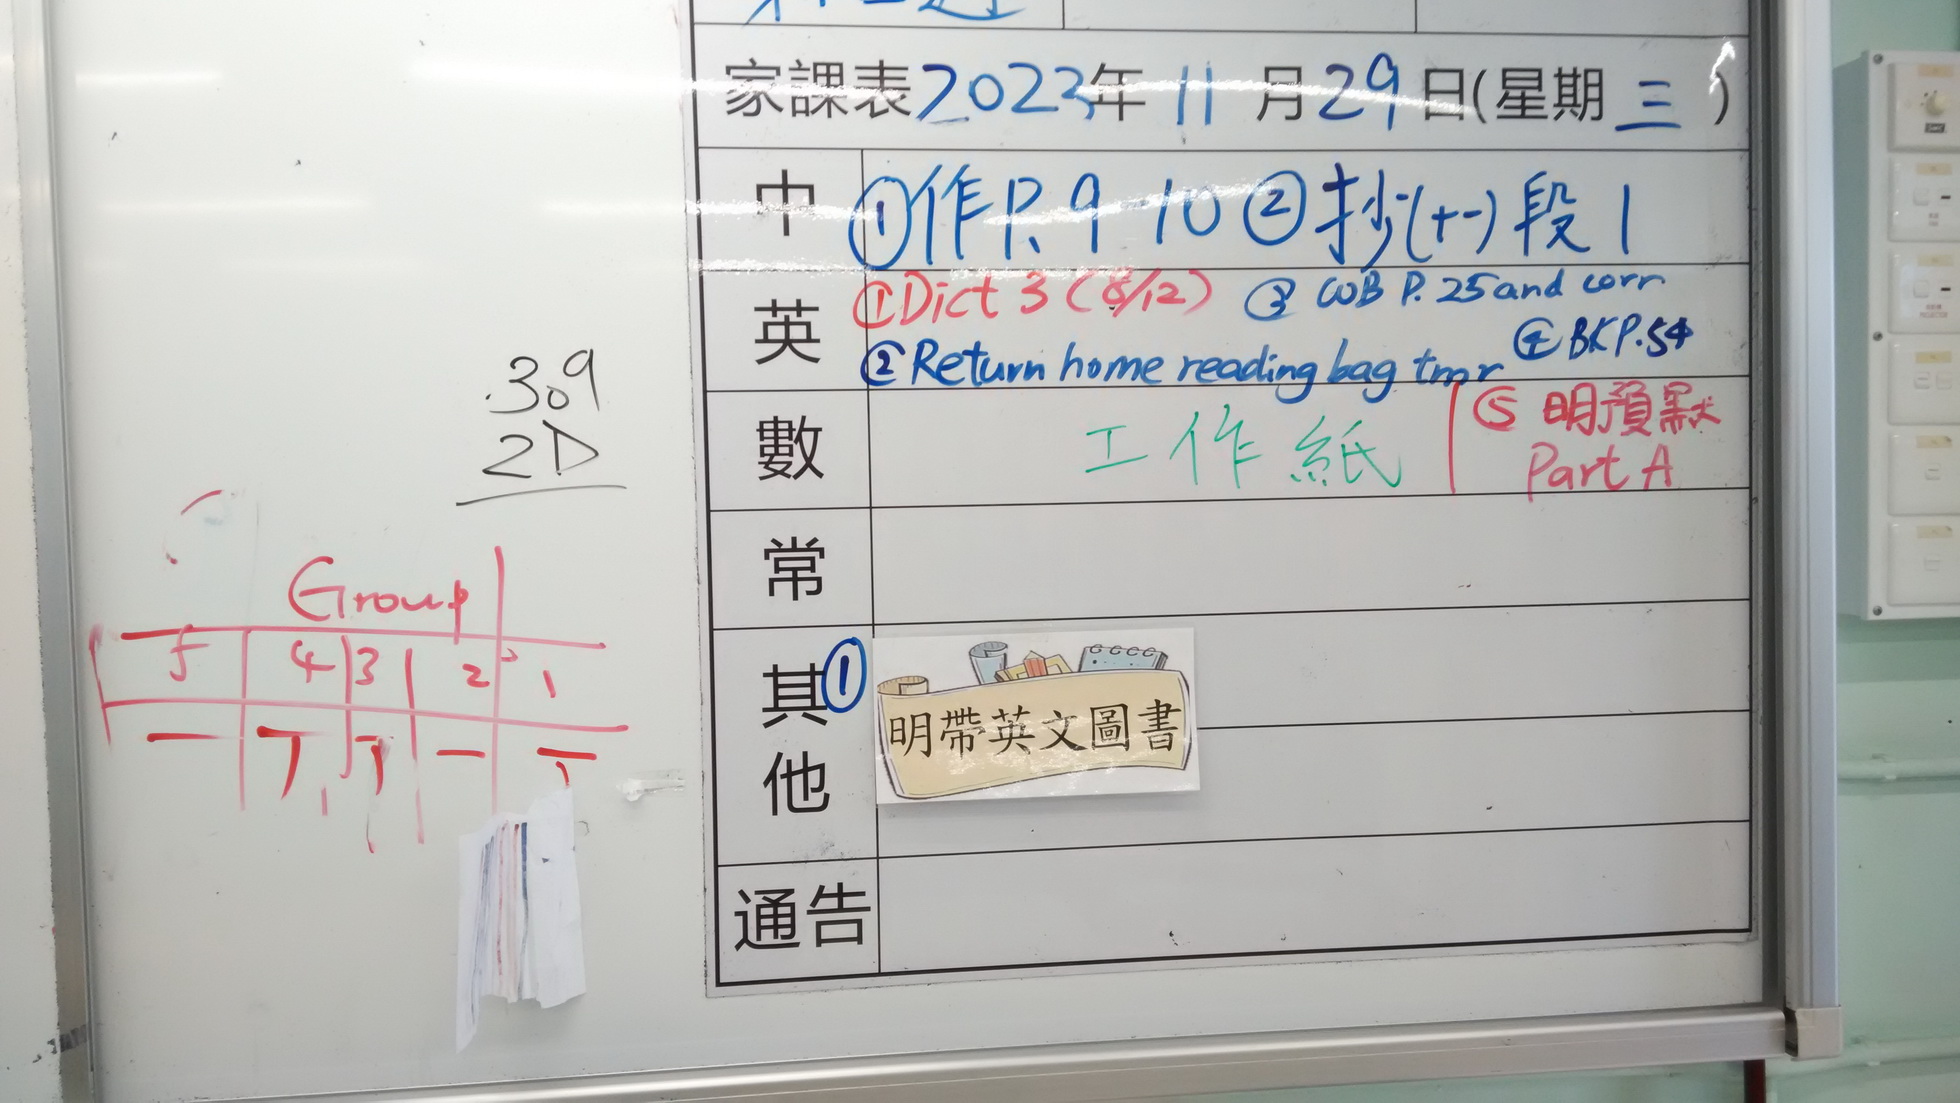 家課表2023年11月29日(星期三)
中 ①作P.9-10 ②抄(十一)段1
英 ①Dict 3 (8/12) ③ WB P.25 and corr
②Return home reading bag tmr ④BK P.54
數 工作紙 ⑤ 明預默
Part A
常
其他 ① 明帶英文圖書
通告
309
2D
Group
5 4 3 2 1